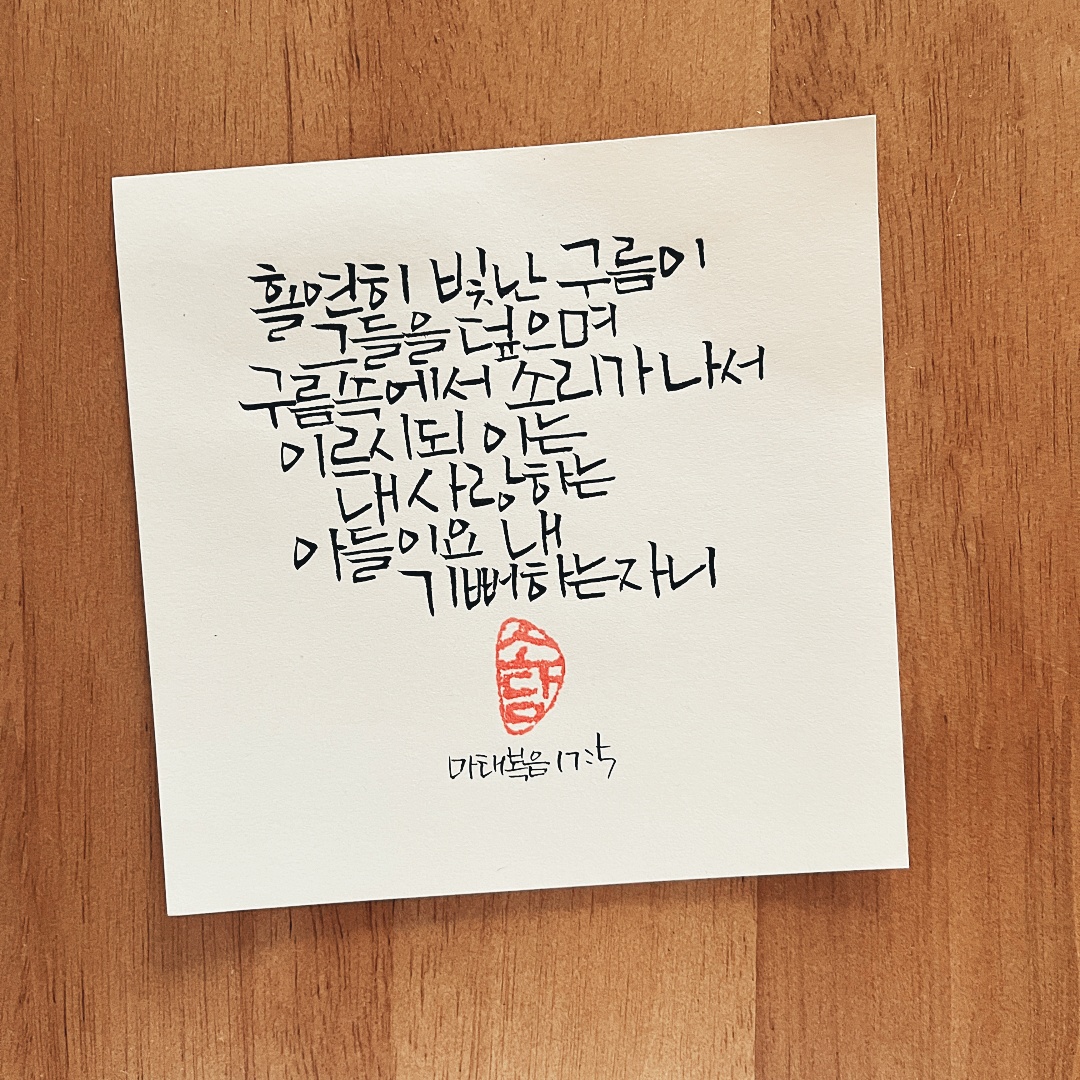 홀연히 빛난 구름이
그들을 덮으며
구름 속에서 소리가 나서
이르시되 이는
내 사랑하는
아들이요 내
기뻐하는 자니
소담
마태복음 17:5